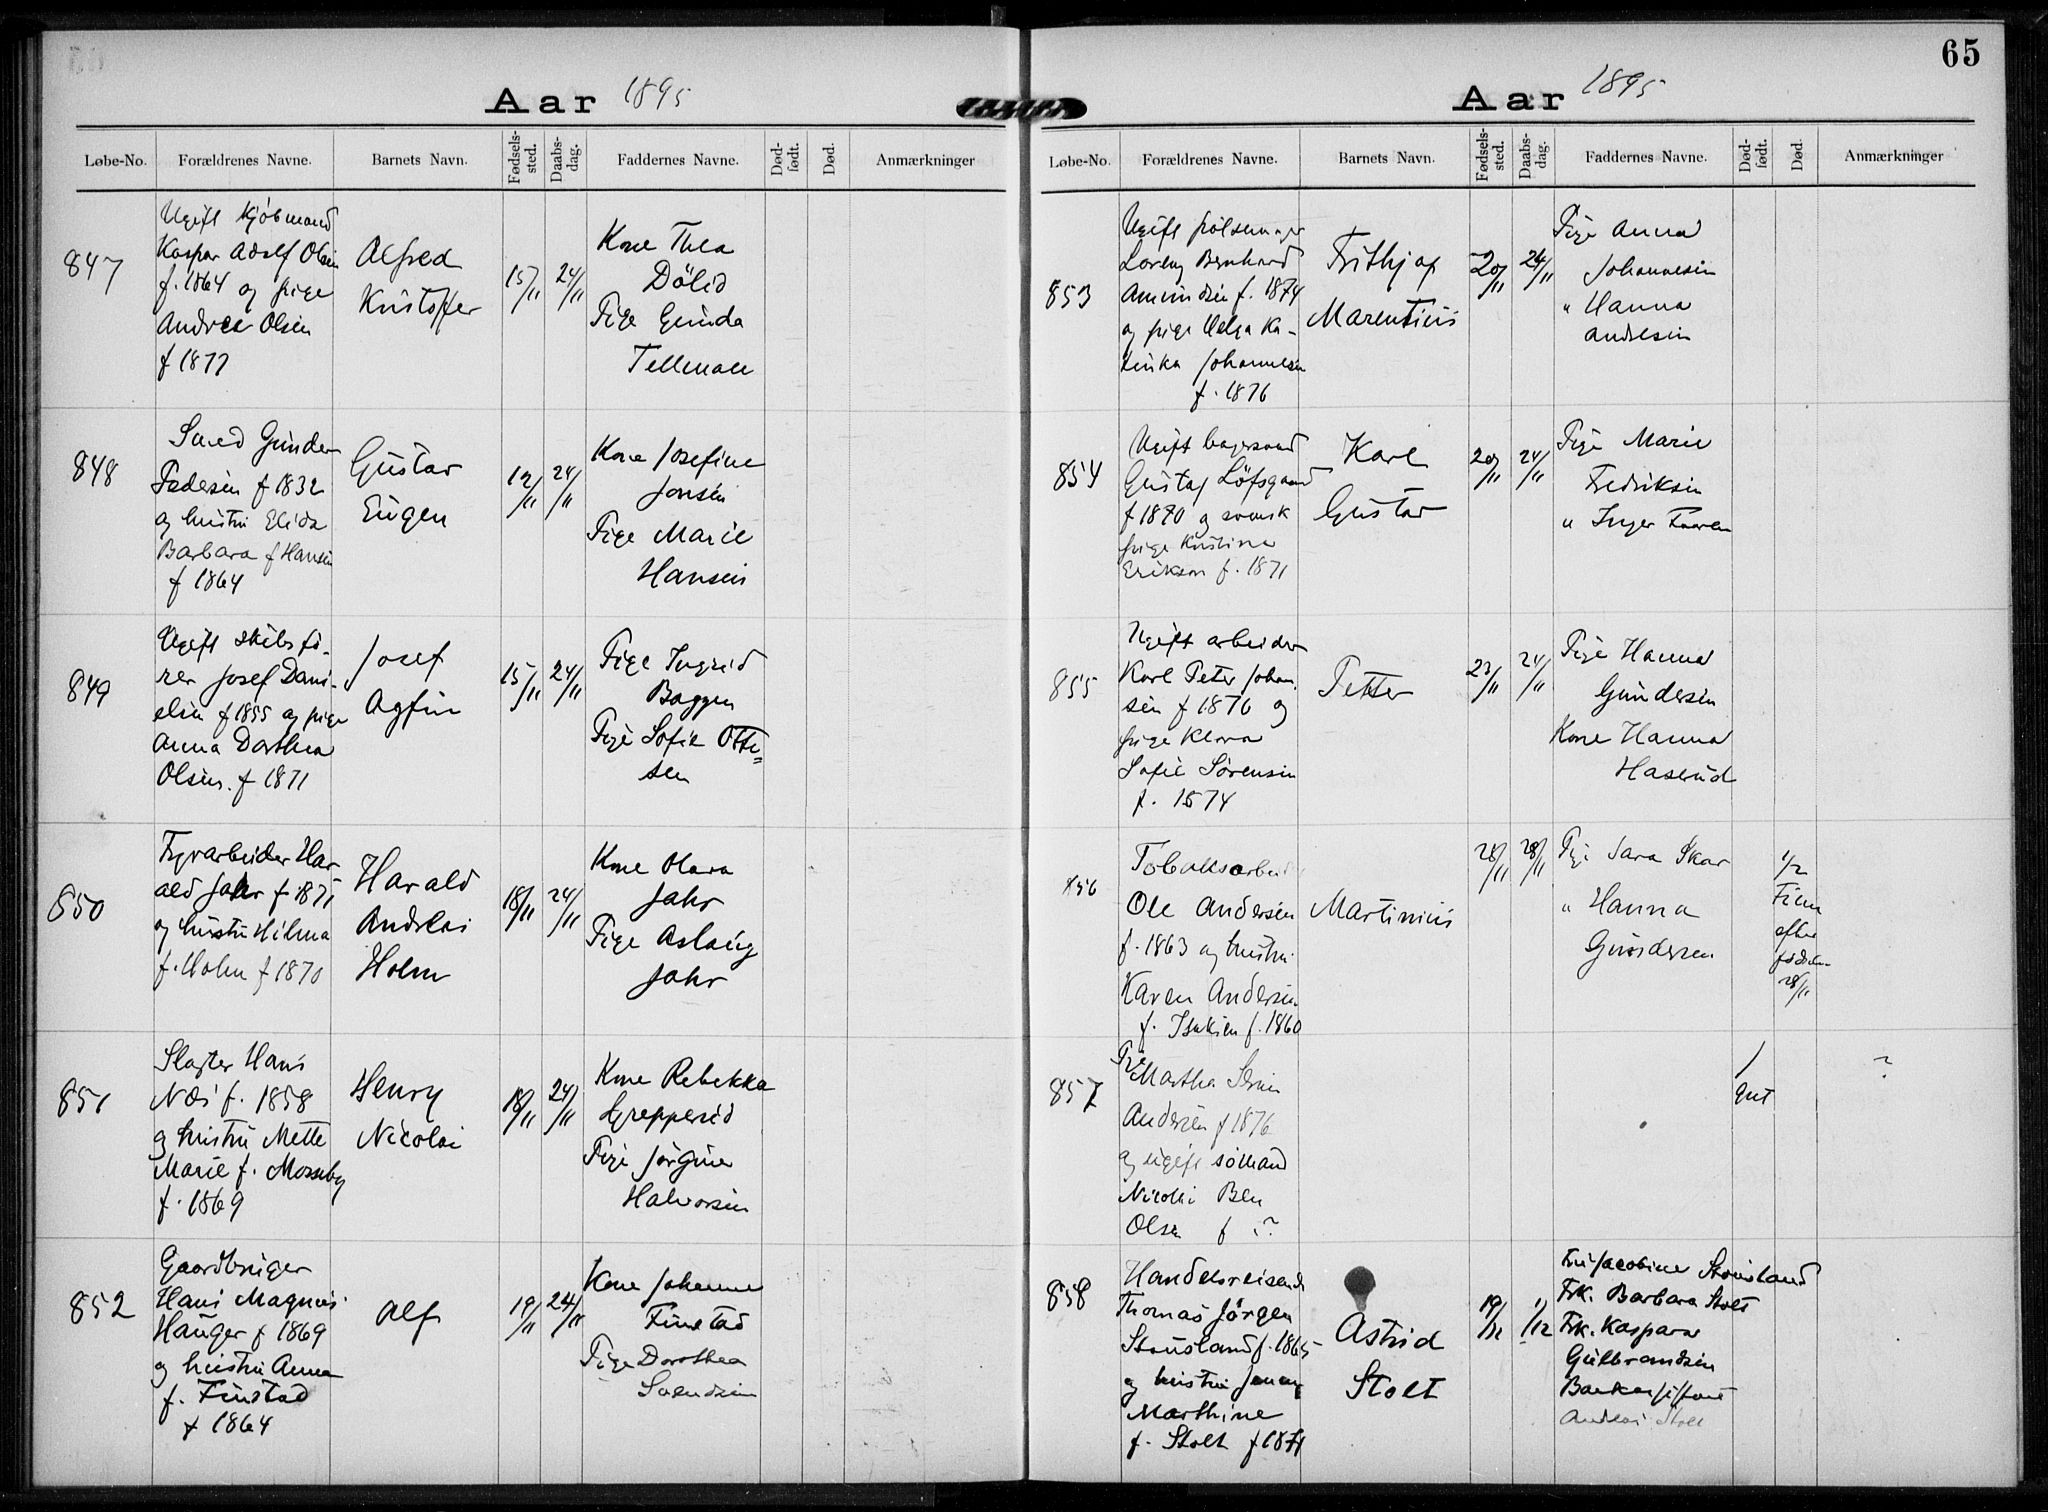 Aar 1895
Løbe-No. Forældrenes Navne. Barnets Navn. Fødsels-sted. Daabs-dag. Faddernes Navne. Død-født. Død. Anmærkninger
847
Ugift Kjöbmand
Kaspar Adolf Olsen
f. 1864 og pige
Andrea Olsen
f 1877
Alfred
Kristoffer
15/11
24/11
Kone Thea
Dölid
Pige Gunda
Tellman
848
Gunder
Pedersen f 1832
og hustru Elida
Barbara f Hansen
f 1864
Gustav
Eugen
12/11
24/11
Kone Josefine
Jonsen
Pige Marie
Hansen
849
Ugift skibsfö-
rer Josef Dani-
elsen f 1855 og pige
Anna Dorthea
Olsen. f 1871
Josef
Agfin
15/11
24/11
Pige Ingrid
Baggen
Pige Sofie Otte=
sen
850
Fyrarbeider Har
ald Jahr f 1875
og hustru Hilma
f. Holm f 1870
Harald
Andreas
Holm
18/11
24/11
Kone Olava
Jahr
Pige Aslaug
Jahr
851
Slagter Hans
Næs f. 1858
og hustru Mette
Marie f. Mosseby
f. 1869
Henry
Nicolai
18/11
24/11
Kone Rebekka
Greppersid
Pige Jörgine
Halvorsen
852
Gaardbruger
Hans Magnus
Hauger f 1869
og hustru Anna
f. Finstad
f 1864
Alf
19/11
24/11
Kone Johanne
Finstad
Pige Dorothea
Svendsen
65
Aar 1895
Løbe-No. Forældrenes Navne. Barnets Navn. Fødsels-sted. Daabs-dag. Faddernes Navne. Død-født. Død. Anmærkninger
853
Ugift pölsemager
Lorenz Bernhard
Amundsen f. 1874
og pige Helga Ka-
trinka Johannesen
f. 1876
Frithjof
Marentius
20/11
24/11
Pige Anna
Johannesen
" Hanna
Andresen
854
Ugift bagersvend
Gustaf Löfsgaard
f 1870 og svensk
pige Kristina
Erikson f. 1871
Karl
Gustav
20/11
24/11
Pige Marie
Fredriksen
" Inger
855
Ugift arbeider
Karl Peter Johan-
sen f 1870 og
pige Klara
Sofie Sörensen
f. 1874
Petter
23/11
24/11
Pige Hanna
Gundersen
Kone Hanna
Haserud
856
Tobaksarbei
Ole Andersen
f. 1863 og hustru
Karen Andersen
f. Isaksen f. 1860
Martinius
28/11
28/11
Pige Sara Skar
" Hanna
Gundersen
1/2
Time
efter
födselen
28/11
857
Pige
Martha
Andersen f 1876
og ugift sömand
Nicolai Ben
Olsen f ?
1
gut
?
858
Handelsreisende
Thomas Jörgen
Stousland f. 1865
og hustru Jenny
Marthine
f. Stolt f 1871
Astrid
Stolt
19/11
1/12
Fru Jacobine Stousland
Frk. Barbara Stolt
Frk. Kaspara
Gulbrandsen
Andreas Stolt